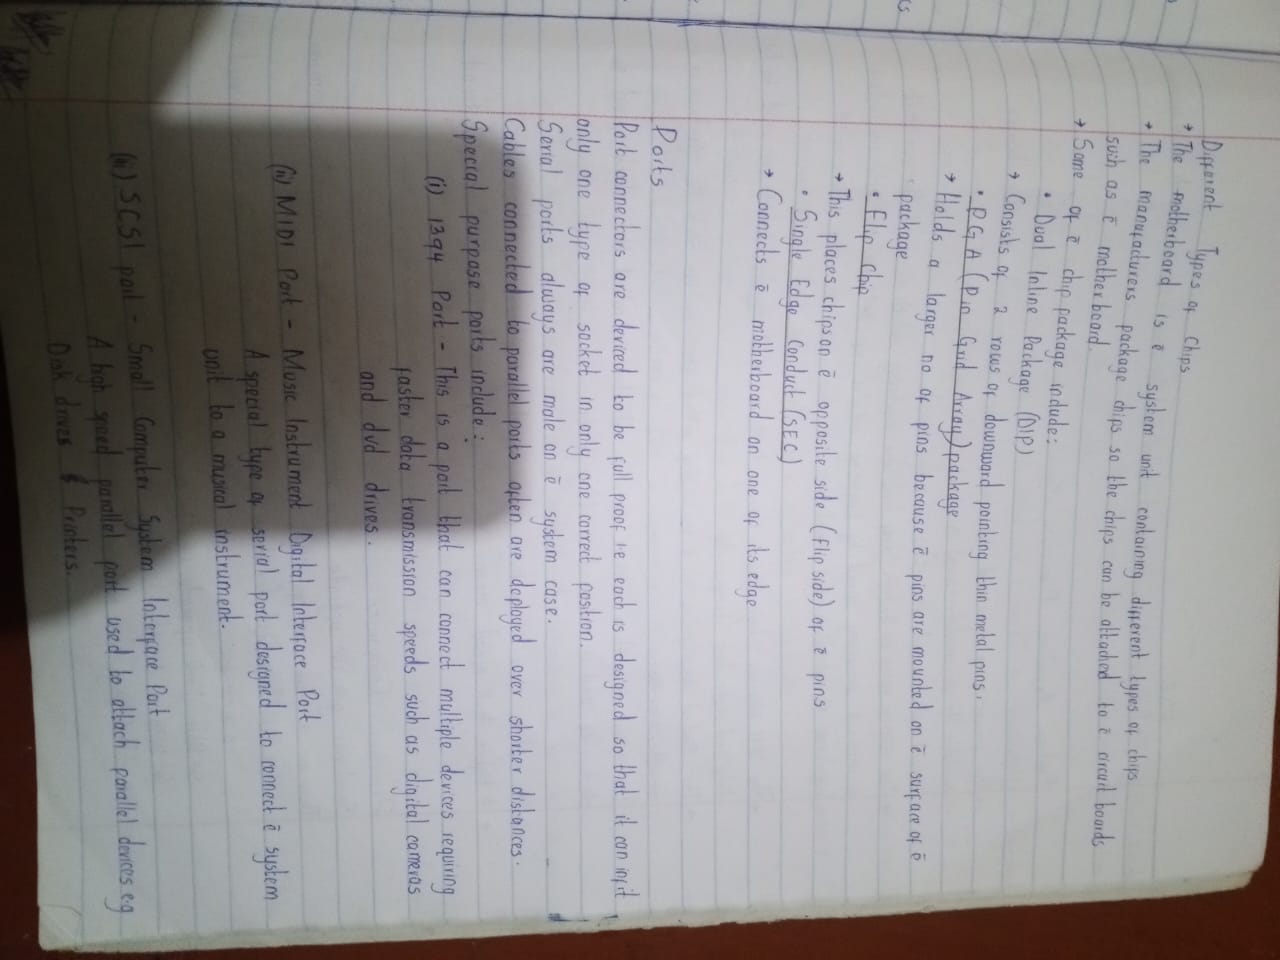 Different Types of Chips
→ The motherboard is ē system unit containing different types of chips
→ The manufacturers package chips so the chips can be attached to ē circuit boards
such as ē motherboard.
→ Some of ē chip package include:
• Dual Inline Package (DIP)
→ Consists of 2 rows of downward pointing thin metal pins.
• PGA (Pin Grid Array) package
→ Holds a larger no of pins because ē pins are mounted on ē surface of ē
package
• Flip Chip
→ This places chips on ē opposite side (flip side) of ē pins
• Single Edge Conduct (SEC)
→ Connects ē motherboard on one of its edge
Ports
Port connectors are deviced to be full proof i.e each is designed so that it can in fit
only one type of socket in only one correct position.
Serial ports always are male on ē system case.
Cables connected to parallel ports often are deployed over shorter distances.
Special purpose ports include:
(i) 1394 Port - This is a port that can connect multiple devices requiring
faster data transmission speeds such as digital cameras
and dvd drives.
(ii) MIDI Port - Music Instrument Digital Interface Port
A special type of serial port designed to connect ē system
unit to a musical instrument.
(iii) SCSI port - Small Computer System Interface Port
A high speed parallel port used to attach parallel devices e.g
Disk drives & Printers.